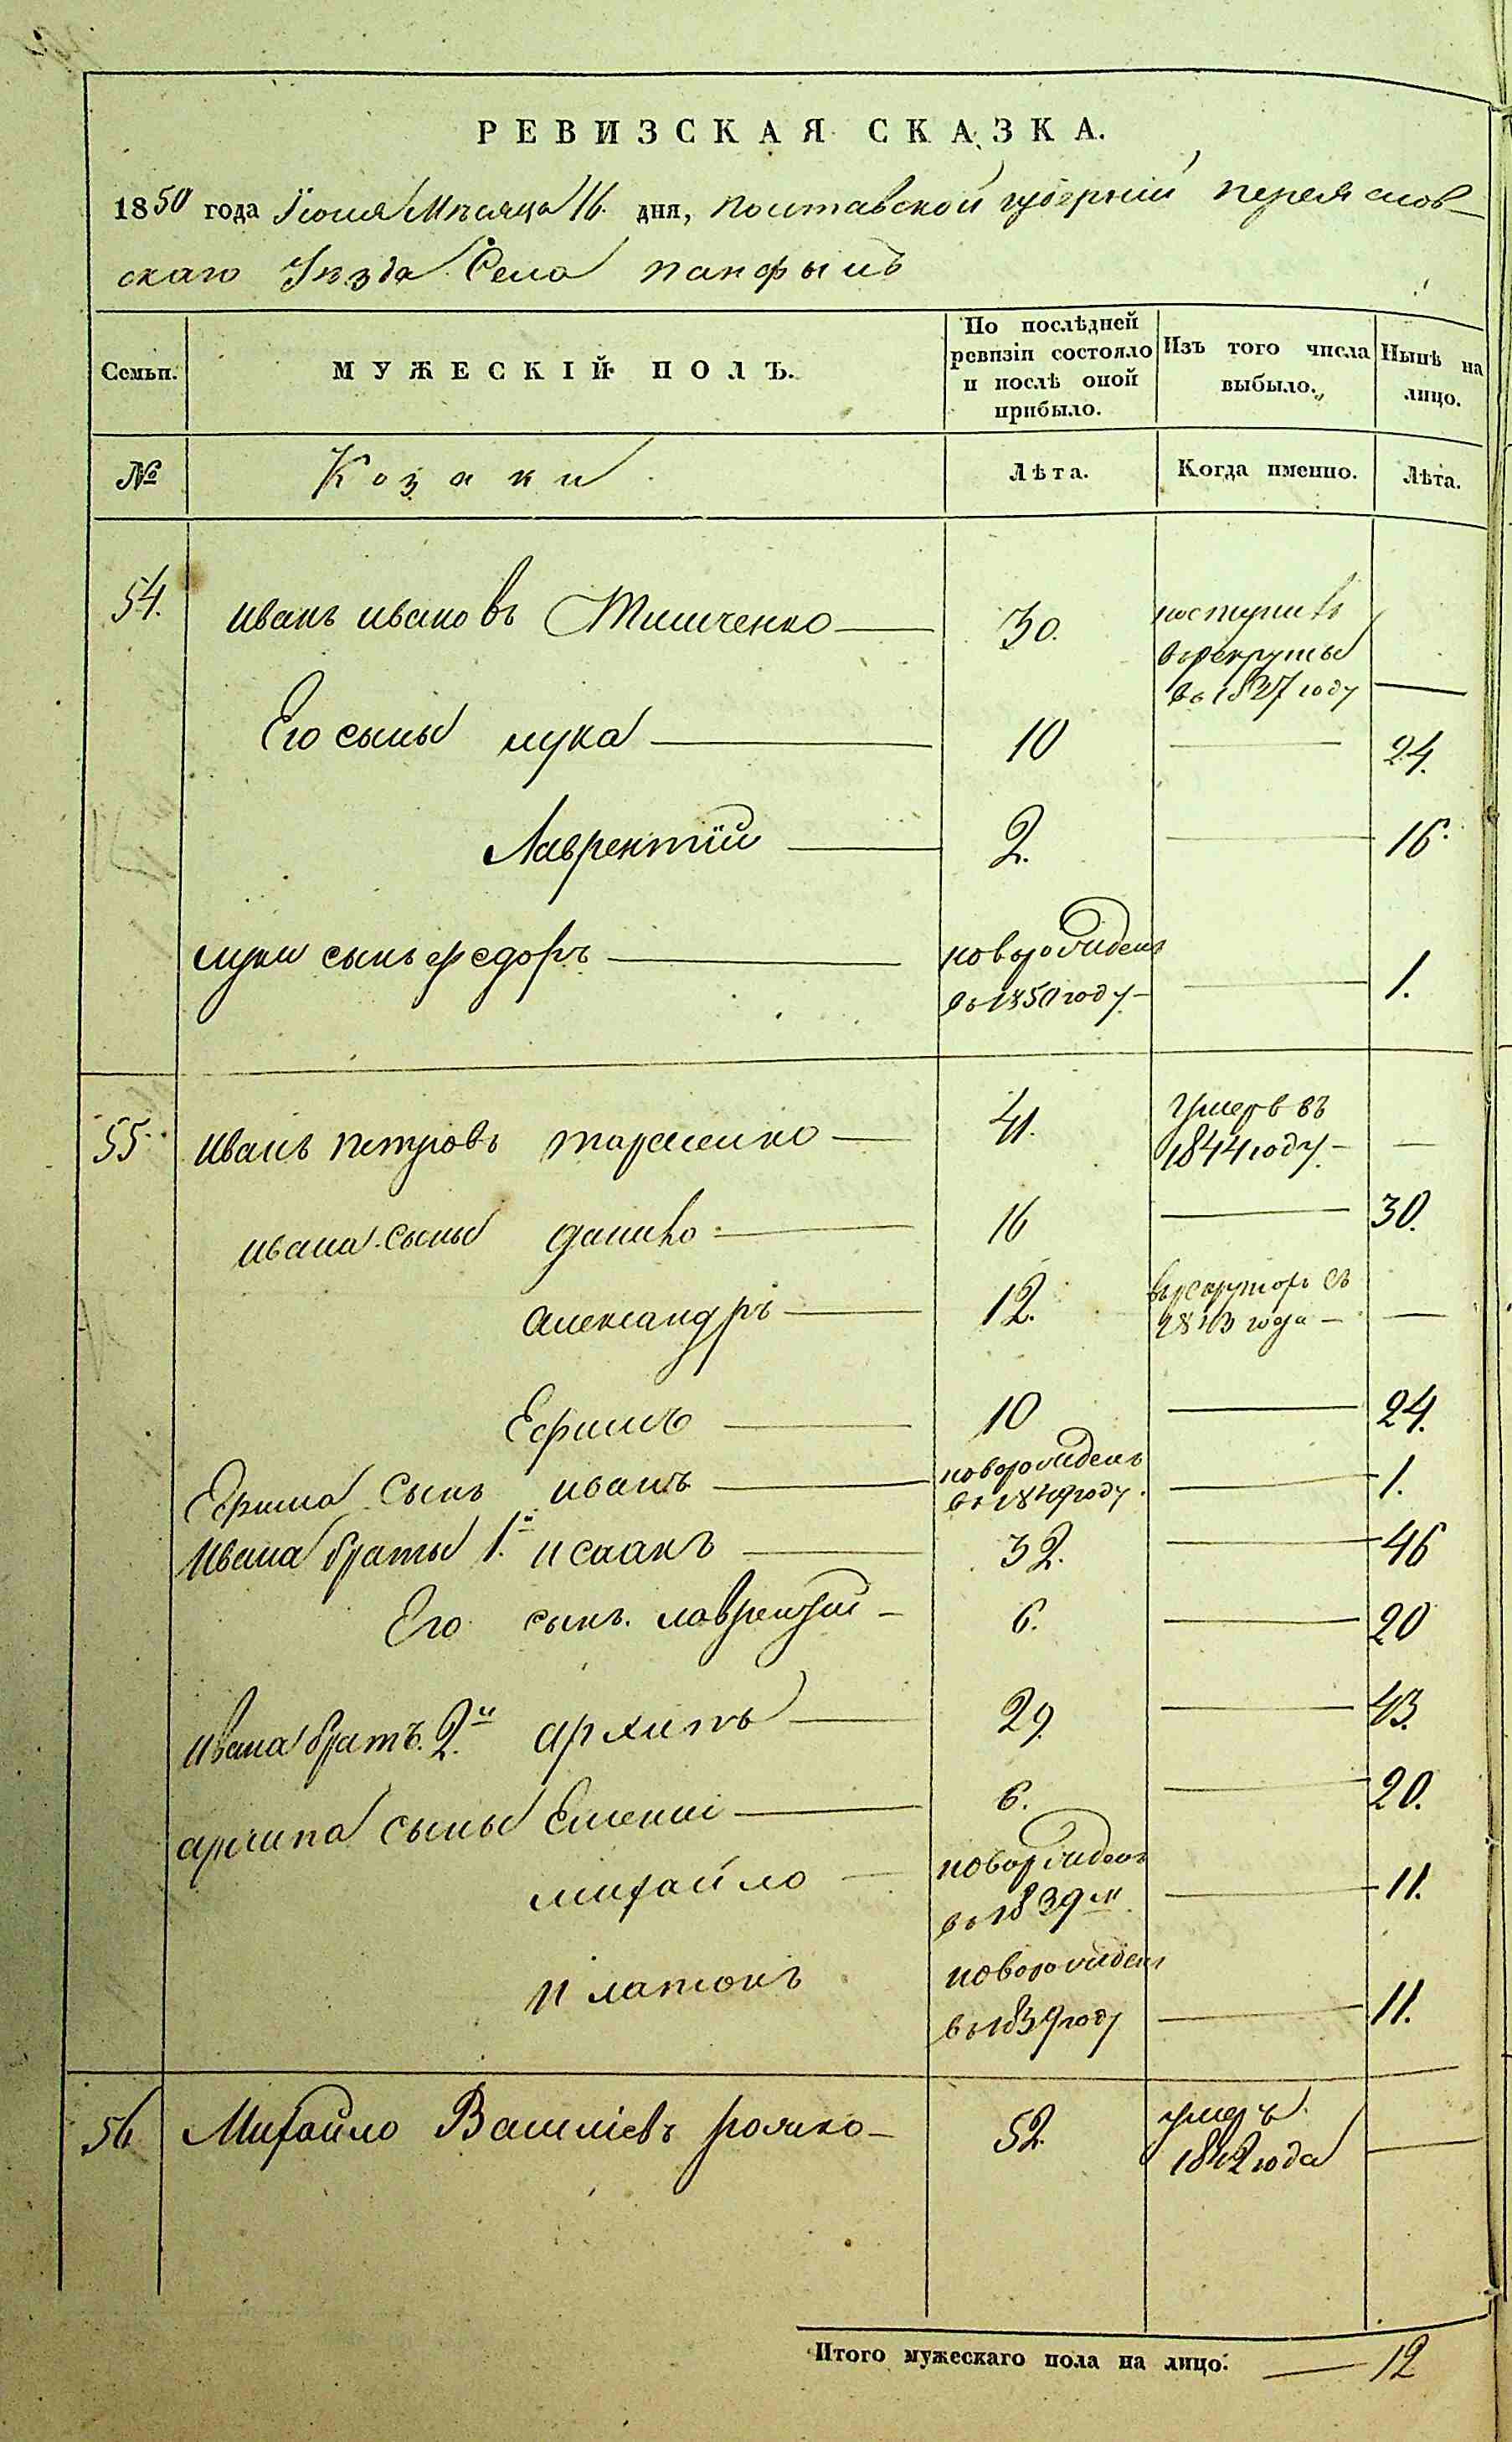 РЕВИЗСКАЯ СКАЗКА.
1850 года Іюня Мѣсяца 16. дня, Полтавской губерніи Переяслов-
скаго Уѣзда Села Панфылъ
Семьи.
МУЖЕСКІЙ ПОЛЪ.
По послѣдней ревизіи состояло и послѣ оной прибыло.
Изъ того числа выбыло.
Нынѣ на лицо.
№
Козаки
Лѣта.
Когда именно.
Лѣта.
54. Иванъ Ивановъ Тимченко — 30. поступивъ
в рекруты
въ 1837 году —
Его сыны Лука — 10 — 24.
Лаврентій — 2. — 16.
Луки сынъ Федоръ — новорожденъ
въ 1850 году — — 1.
55. Иванъ Петровъ — 41. Умеръ въ
1844 году. — —
Ивана сыны Данило — 16 — 30.
Александръ — 12. в рекрутахъ съ
1843 года — —
Ефимъ — 10 — 24.
Ефима сынъ Иванъ — новорожденъ
въ 1849 году. — 1.
Ивана браты 1.й Исаакъ — 32. — 46
Его сынъ. Лаврентій — 6. — 20
Ивана братъ. 2.й Архипъ — 29. — 43.
Архипа сыны — 6. — 20.
Михайло — новорожденъ
въ 1839 м — 11.
Платонъ новорожденъ
въ 1839 году — 11.
56 Михайло Василіевъ — 52. умеръ
1842 года —
Итого мужескаго пола на лицо. — 12